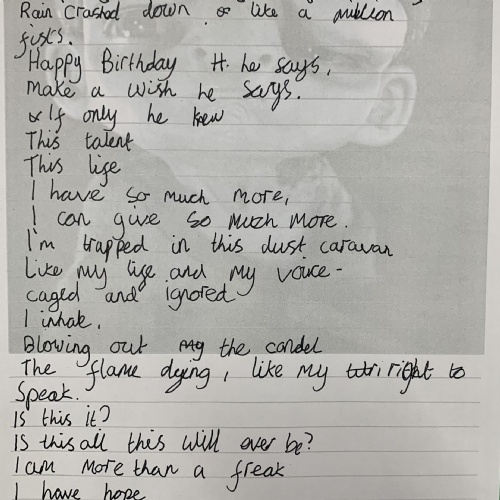 Rain Crashed down like a million
fists.
Happy Birthday H. he says,
Make a wish he says.
If only he knew
This talent
This life
I have so much more,
I can give so much more.
I'm trapped in this dust caravan
Like my life and my voice -
caged and ignored
I inhale.
Blowing out my the candel
The flame dying, like my right to
Speak.
Is this it?
Is this all this will ever be?
I am more than a freak
I have hope